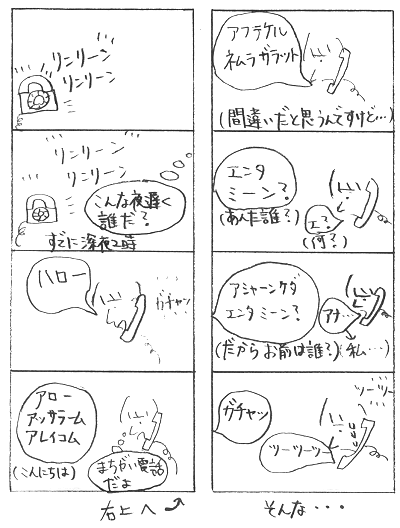 リンリーン
リンリーン
リンリーン
リンリーン
こんな夜遅く
誰だ?
すでに深夜2時
ハロー
ガチャッ
アロー
アッサラーム
アレイコム
(こんにちは)
まちがい電話
だよ
右上へ
アフラケル
ネムラガラット
(間違いだと思うんですけど…)
エンタ
ミーン?
(あんた誰?)
エ?
(何?)
アシャーンケダ
エンタミーン?
アナ…
(だからお前は誰?)
(私…)
ガチャッ
ツーツー
ツーツーツー
そんな・・・